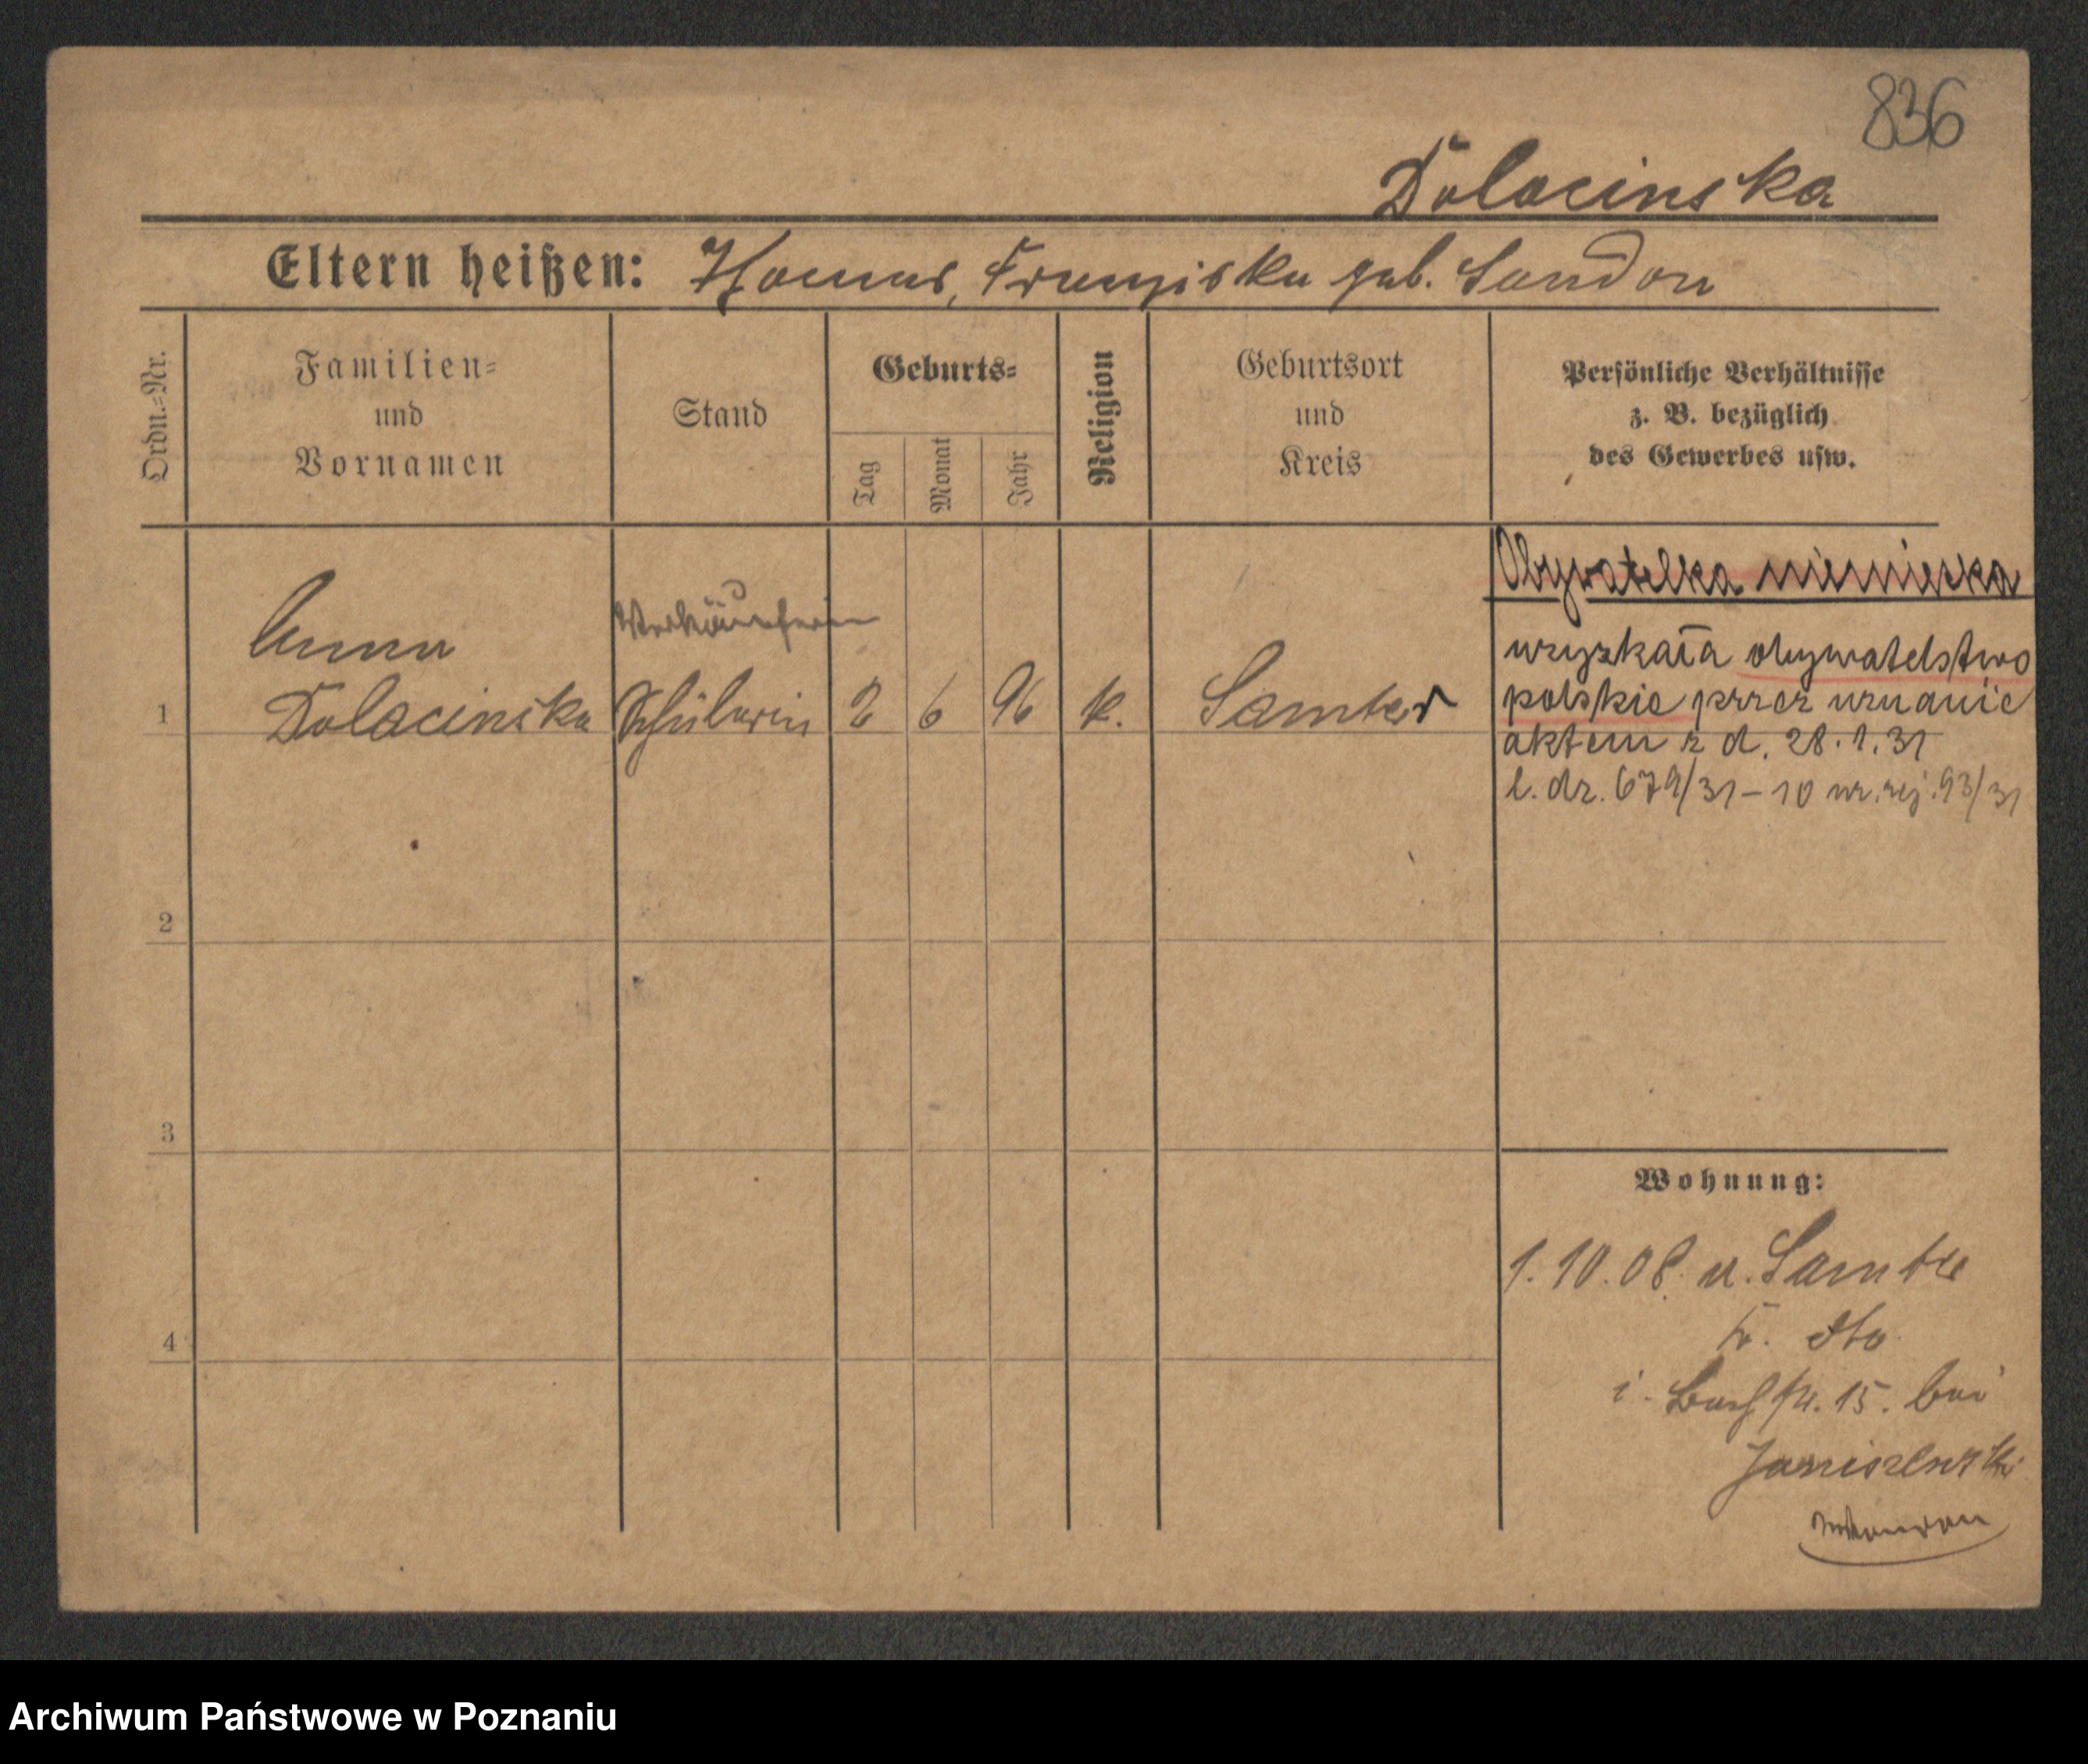 836
Dolacinska
Eltern heißen: Franziska geb. Sandon
Ordn.=Nr.
Familien=
und
Vornamen
Stand
Geburts=
Tag
Monat
Jahr
Religion
Geburtsort
und
Kreis
Persönliche Verhältnisse
z. B. bezüglich
des Gewerbes usw.
Obywatelka niemiecka
Verkäuferin
Anna
1 Dolacinska Schülerin 2 6 96 k. Samter
uzyskała obywatelstwo
polskie przez uznanie
aktem z d. 28.1.31
l. dz. 679/31-10 nr. rej. 93/31
2
3
4
Wohnung:
1.10.08. v. Samter
dto
i. 15. bei
Janiszewski